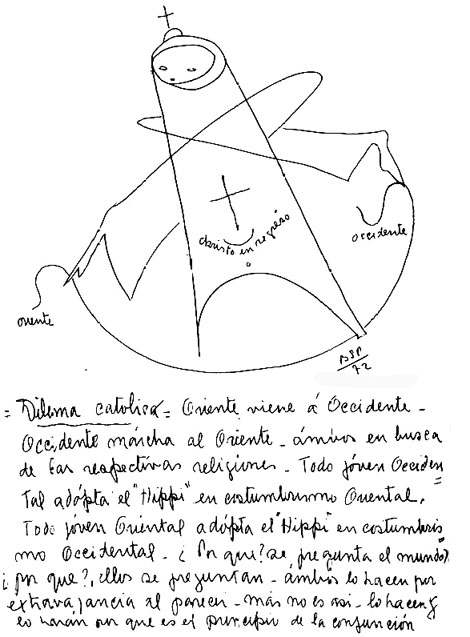 Christo en regreso
occidente
oriente
BSP
72
= Dilema catolica = Oriente viene á Occidente -
Occidente márcha al Oriente - ámbos en busca
de las respectivas religiones - Todo jóven Occiden
tal adópta el "Hippi" en costumbrismo Oriental. =
Todo jóven Oriental adópta el "Hippi" en costumbris
mo Occidental - ¿ Por que? se pregunta el mundo?
¿ por que?, ellos se preguntan - ámbos lo hacen por
extravagancia al parecer - más no es asi - lo hacen y
lo harán por que es el principio de la conjunción